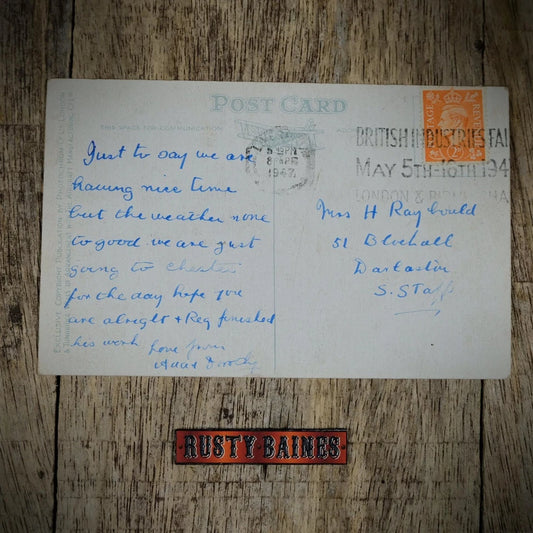 POST CARD
THIS SPACE FOR COMMUNICATION
5.15 PM
8 APR
1947
BRITISH INDUSTRIES FAI
MAY 5TH-16TH 194
LONDON &
POSTAGE REV
Just to say we are
having nice time
but the weather none
to good we are just
going to Chester
for the day hope you
are alright + Reg finished
his work Love from
Miss H Raybould
51
Darlaston
S. Staffs
RUSTY BAINES